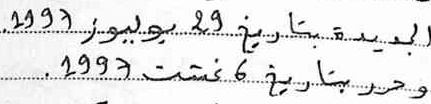 الجديدة بتاريخ 29 يوليوز 1997.
وحرر بتاريخ 6 غشت 1997.